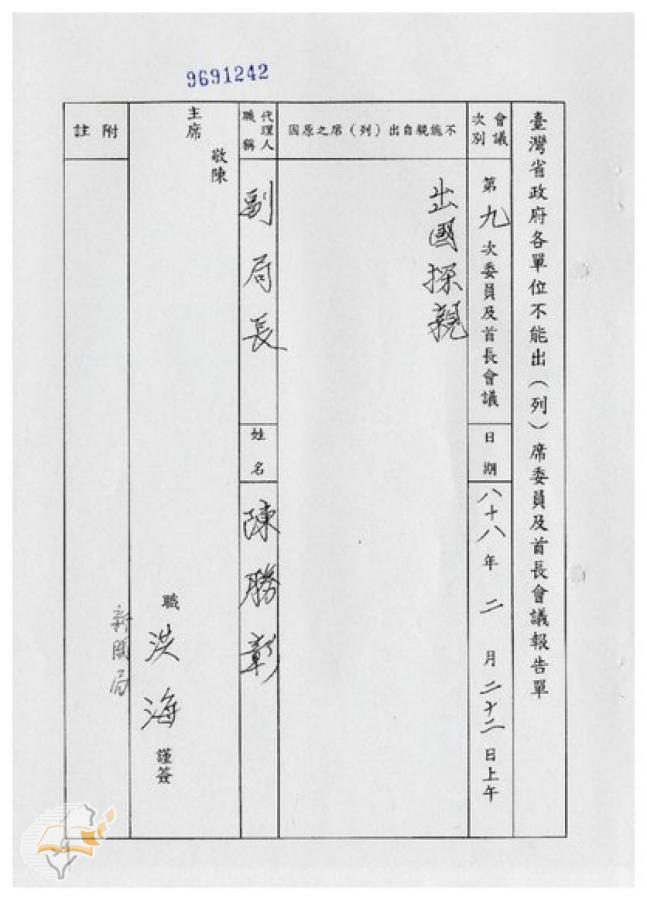 9691242
臺灣省政府各單位不能出（列）席委員及首長會議報告單
會議次別
第九次委員及首長會議
日期
八十八年二月二十二日上午
不能親自出（列）席之原因
出國探親
代理人職稱
副局長
姓名
陳勝彰
敬陳
主席
職 洪海 謹簽
附註
新聞局